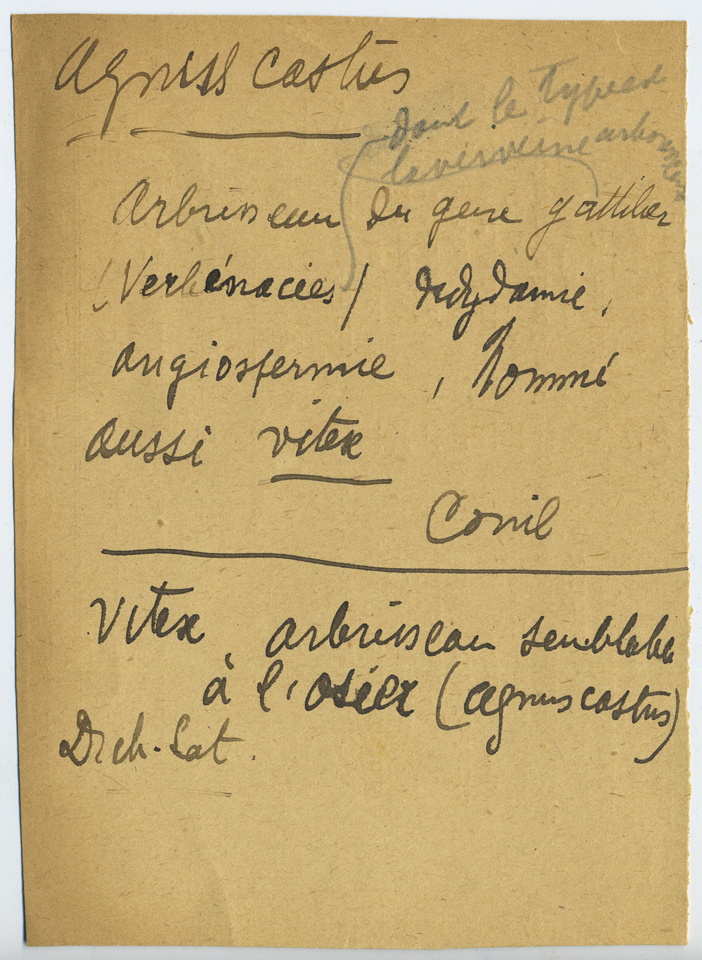 Agnus castus
dont le type est
la verveine arborescente
Arbrisseau du genre gattilier
(Verbénacées) didydamie,
angiospermie, nommé
aussi vitex
Conil
Vitex, arbrisseau semblable
à l'osier (agnus castus)
Dich. Lat.